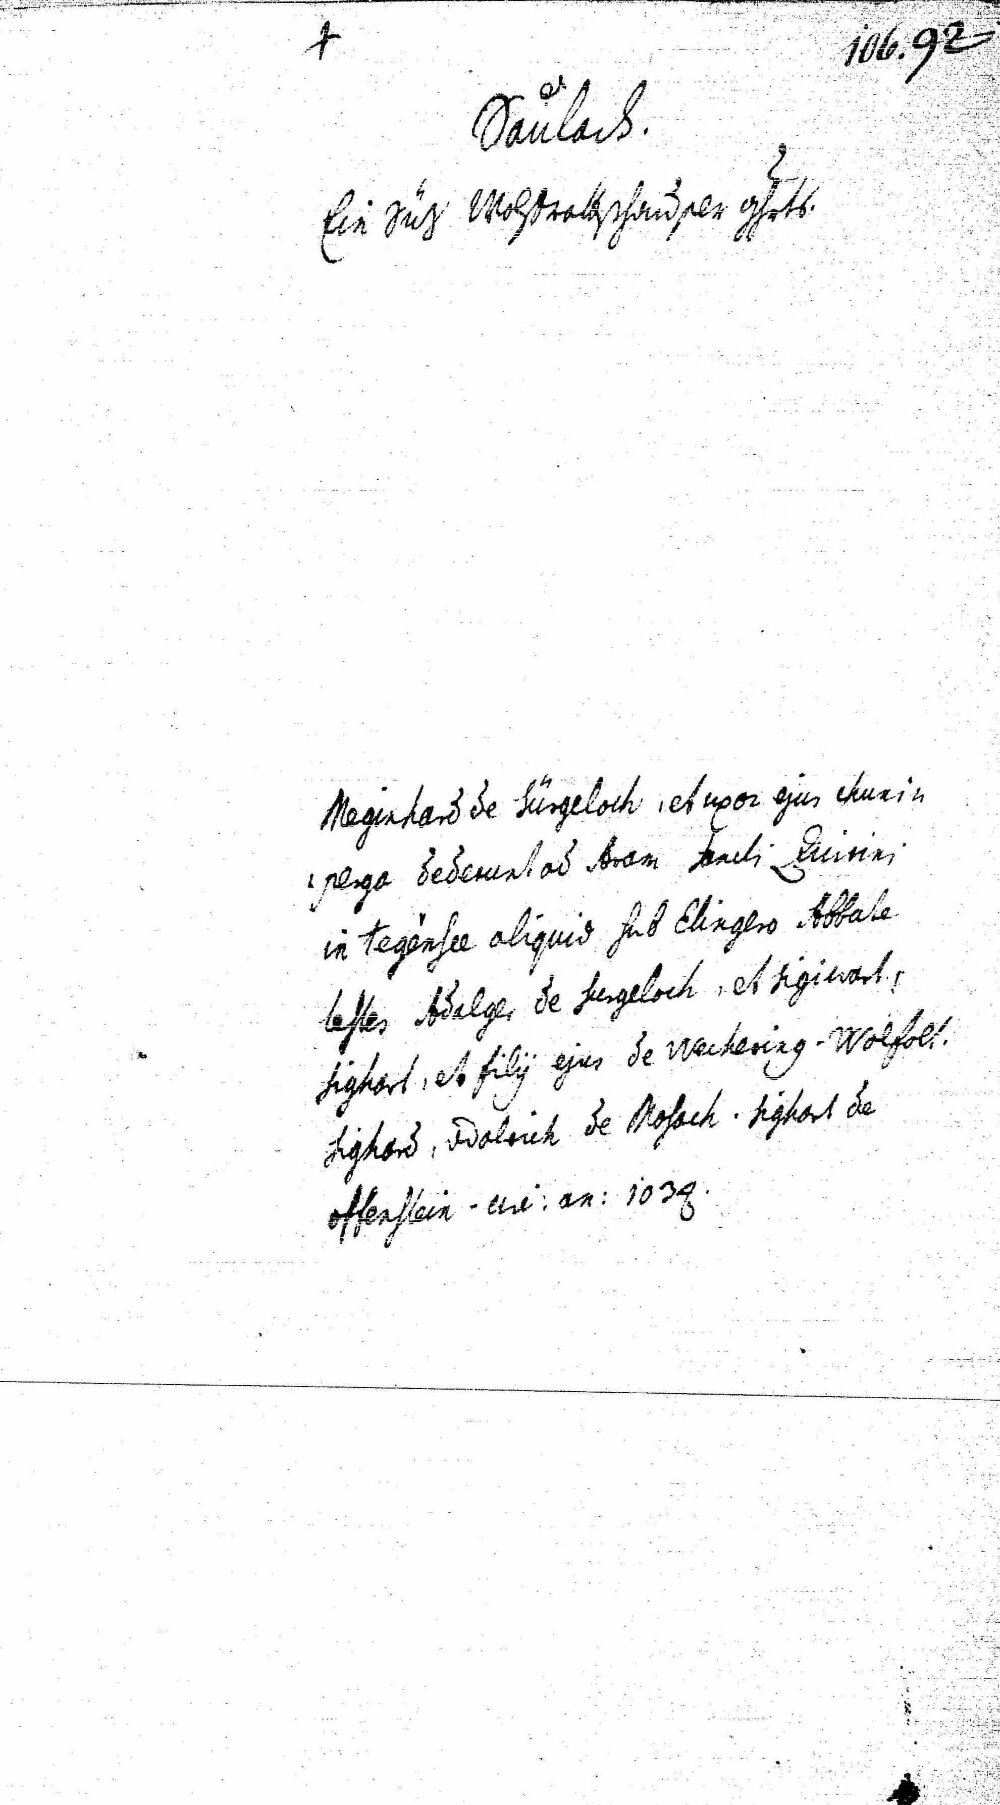 106. 92
Saulach.
Ein Siz Wolfratzhauser ghrts.
Meginhard de Sürgeloch, et uxor ejus chunin
perga dederunt ad Aram Sancti Quirini
in Tegensee aliquid sub Elingero Abbate
testes Adalger de Surgeloch, et Sigiwart,
Sighart, et filij ejus de Wachering. Wolfolt.
Sighard, Vdalrich de Mosach. Sighart de
offenstein - an: 1038.